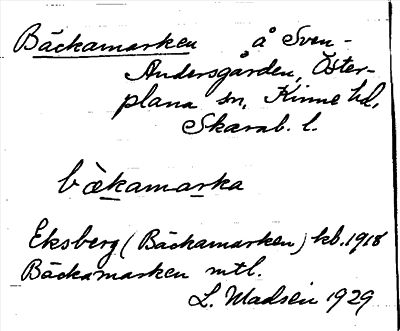 Bäckamarken å Sven-
Andersgården, Öster-
plana sn, Kinne hd,
Skarab. l.
bèkamarka
Eksberg (Bäckamarken) kb. 1918
Bäckamarken mtl.
L. Madsén 1929